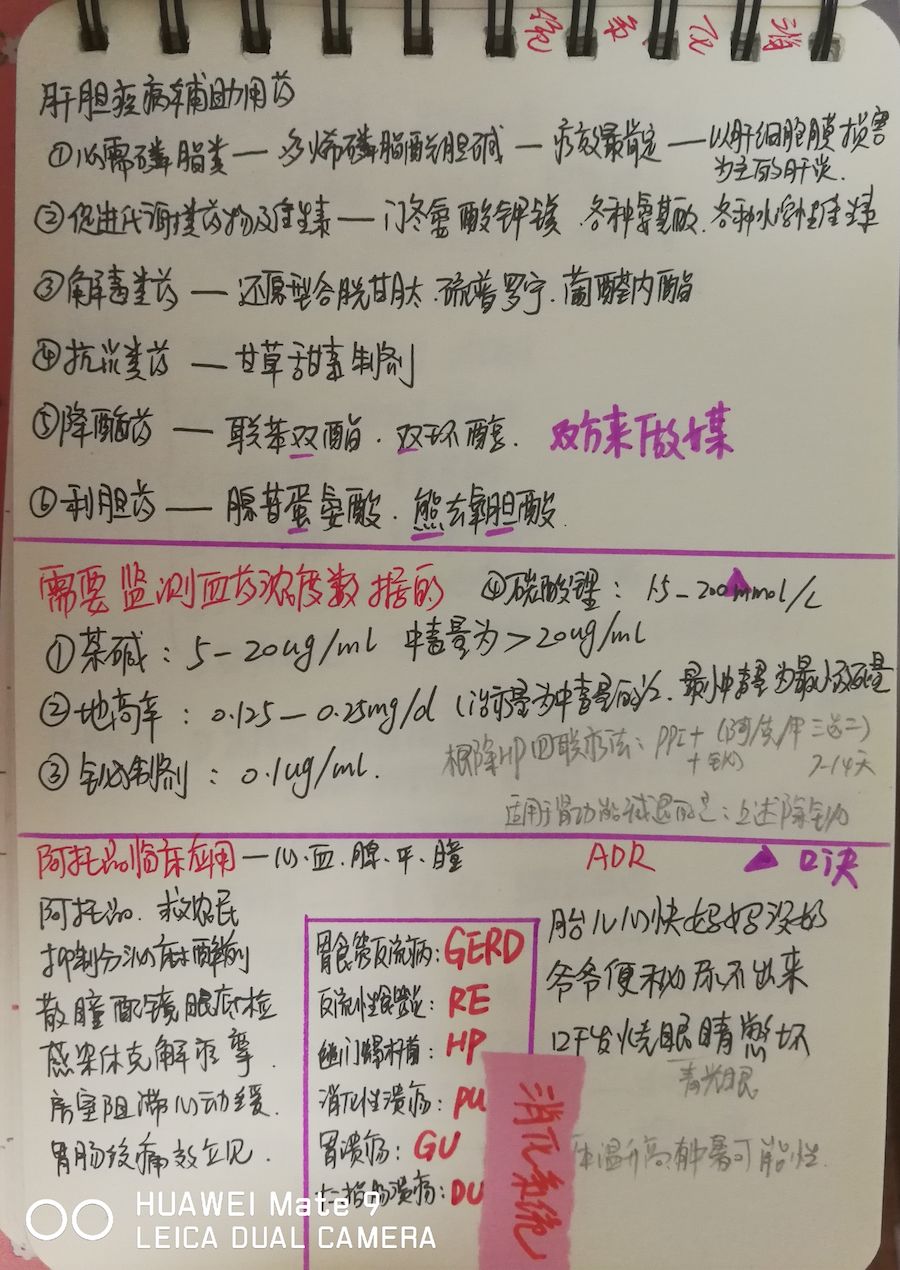 消化系统
肝胆疾病辅助用药
①必需磷脂类—多烯磷脂酰胆碱—疗效最肯定—以肝细胞膜损害
为主的肝炎.
②促进代谢类药物及维生素—门冬氨酸钾镁 各种氨基酸.各种水溶性维生素
③解毒类药—还原型谷胱甘肽.硫普罗宁.葡醛内酯
④抗炎类药—甘草甜素制剂
⑤降酶药—联苯双酯.双环醇. 双方来做媒
⑥利胆药—腺苷蛋氨酸.熊去氧胆酸.
需要监测血药浓度数据的 ④碳酸锂:
①茶碱:5-20ug/ml 中毒量为>20ug/ml
②地高辛:0.125-0.25mg/d(治疗量为中毒量的1/2.最小中毒量为最小致死量
③铋制剂:0.1ug/ml.
根除HP四联疗法:PPI+(阿/克/甲三选二)
+铋 7-14天
适用于肾功能减退的是:上述除铋
阿托品临床应用—心.血.腺.平.瞳
阿托品.救农民
抑制分泌麻醉剂
散瞳配镜眼底检
感染休克解痉挛
房室阻滞心动缓.
胃肠绞痛效立见.
胃食管反流病:GERD
反流性食管炎:RE
幽门螺杆菌:HP
消化性溃疡:PU
胃溃疡:GU
十二指肠溃疡:DU
消化系统
ADR 口诀
胎儿心快妈妈没奶
爷爷便秘尿不出来
口干发烧眼睛憋坏
青光眼
体温升高有中暑可能性.
HUAWEI Mate 9
LEICA DUAL CAMERA